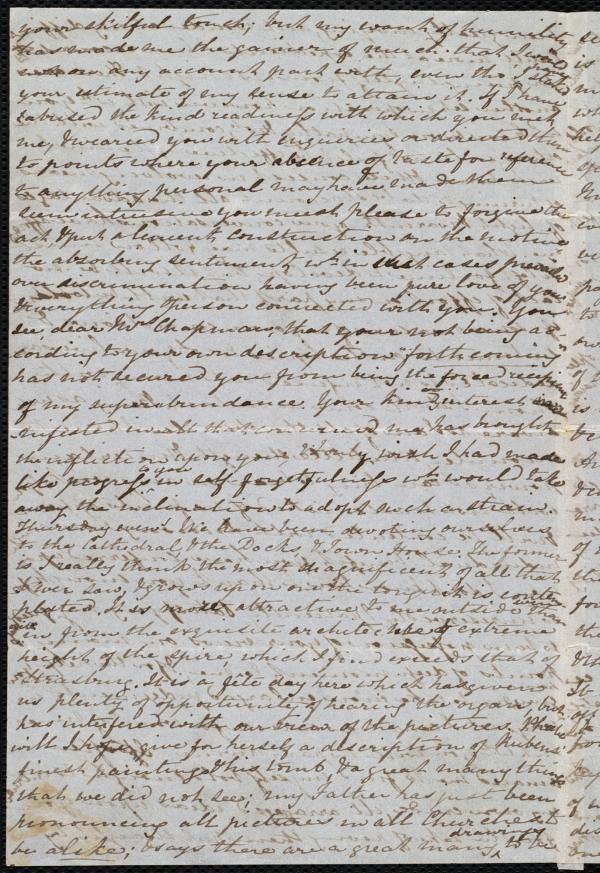 your skilful touch; but my want of humility
has made me the gainer of much that I would
not on any account part with, even tho' I stated
your estimate of my sense to attain it. If I have
abused the kind readiness with which you met
me, & wearied you with inquiries or directed them
to points where your absence of taste for reference
to anything personal may have made them
seem intrusive you must please to forgive the
act & put a lenient construction on the motive
the absorbing sentiment wh in such cases
our discrimination having been pure love of you
& everything & person connected with you. You
see, dear Mrs Chapman, that your not being ac
cording to your own description "forthcoming"
has not secured you from being the forced recipient
of my superabundance. Your kind interest mani
fested in all that concerned me has brought
the infliction upon you, I only wish I had made
like progress to you in self-forgetfulness wh would take
away the inclination to adopt such a strain.
Thursday eveng We have been devoting ourselves
to the Cathedral, & the Docks, & Town House. The former
is I really think the most magnificent of all that
I ever saw, & grows upon one the longer it is contem
plated. It is most attractive to me outside than
in, from the exquisite architecture & extreme
height of the spire, which I find exceeds that of
Strasburg. It is a fête day here which has given
us plenty of opportunity of hearing the organ but
has interfered with our view of the pictures.
will I hope give for herself a description of Rubens'
finest paintings & his tomb, & a great many things
that we did not see; my Father has just been
pronouncing all pictures in all Churches to
be alike; & says there are a great many drawings to be